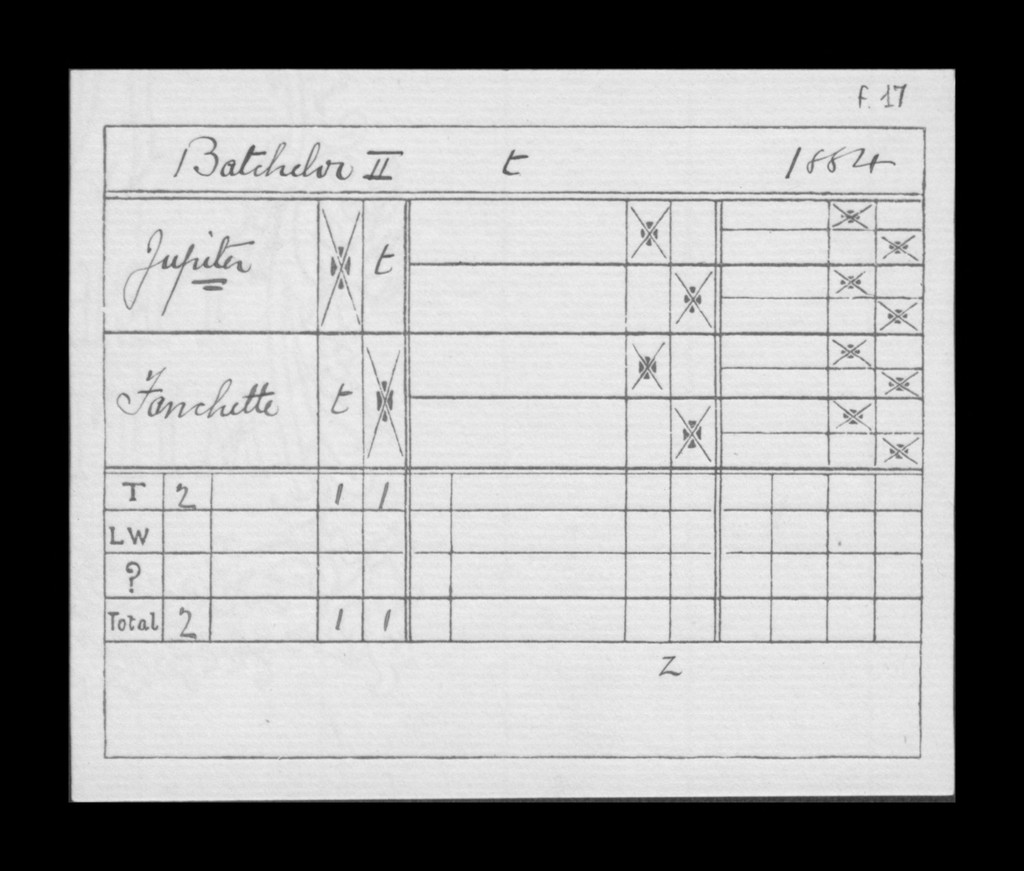 f. 17
Batchelor II t 1884
Jupiter t
Fanchette t
T 2 1 1
LW
?
Total 2 1 1
2